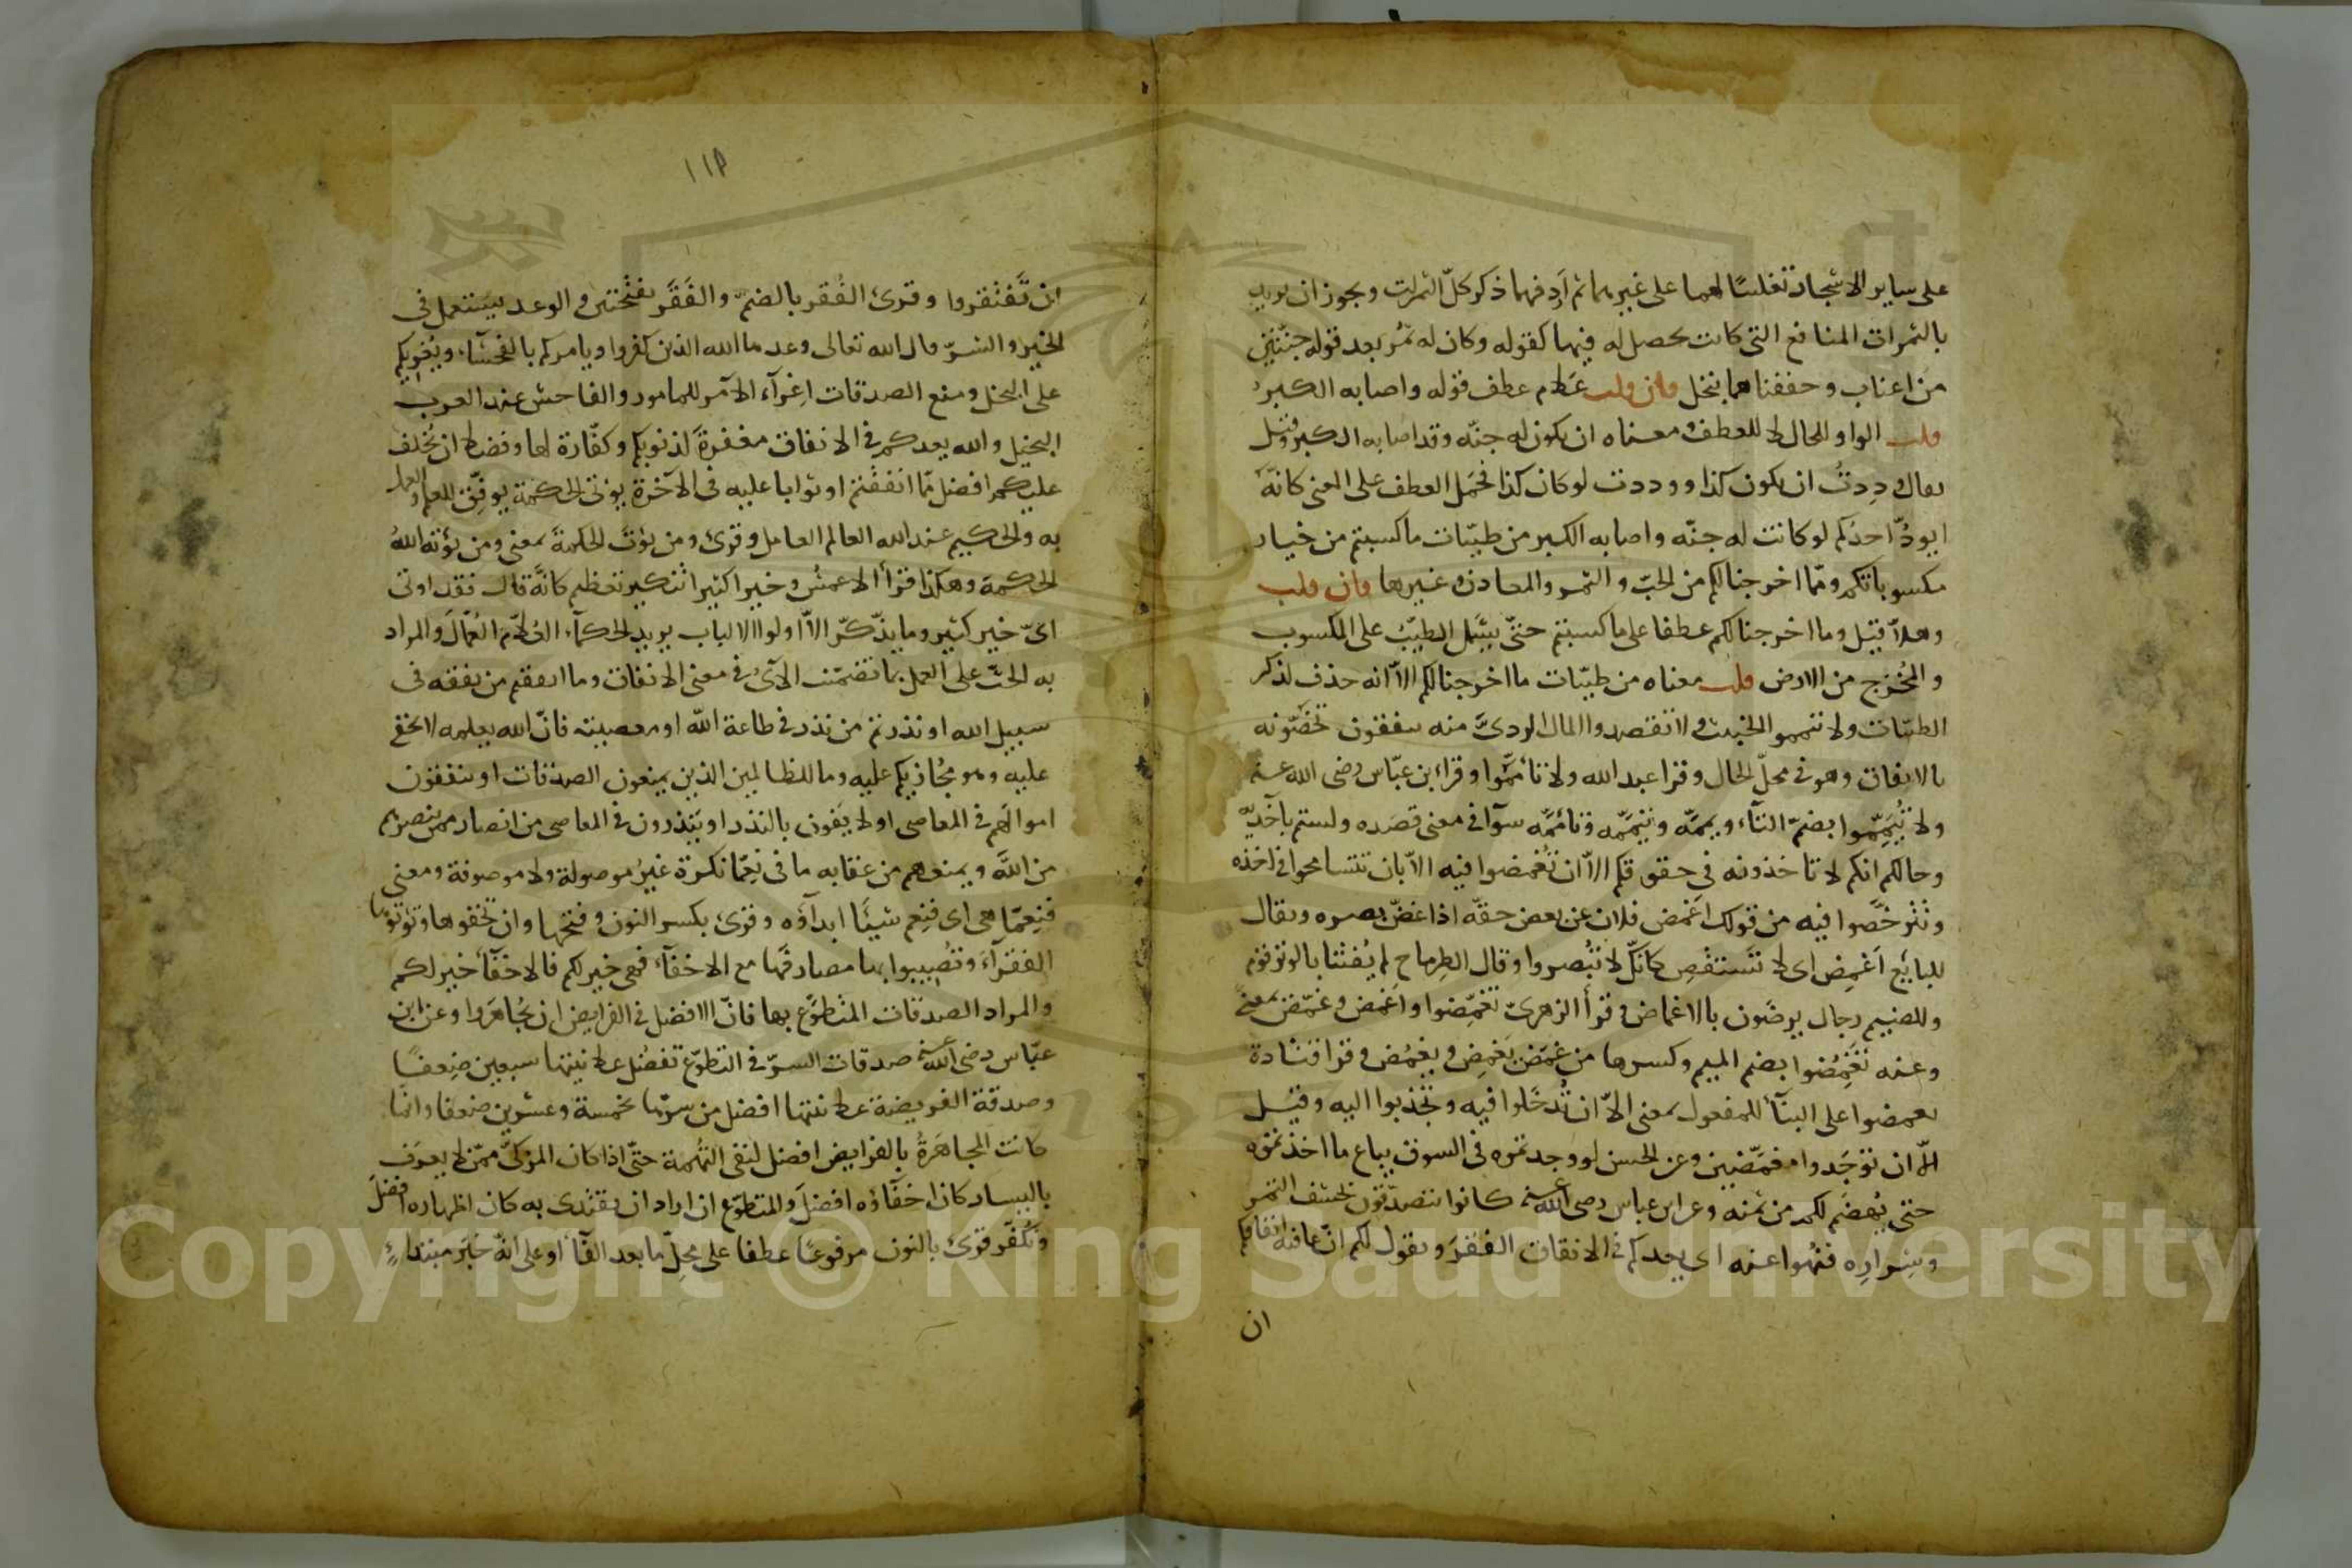 على ساير الاشجار تغليبا لهما على غيرهما ثم اردفهما ذكر كلّ الثمرات ويجوز ان يريد
بالثمرات المنافع التى كانت تحصل له فيها كقوله وكان له ثمر بعد قوله جنّتين
من اعناب وحففناهما بنخل فان قلت علام عطف قوله واصابه الكبر
قلت الواو للحال لا للعطف ومعناه ان يكون له جنّة وقد اصابه الكبر وقيل
يقال وددت ان يكون كذا ووددت لو كان كذا فحمل العطف على المعنى كانّه
ايودّ احدكم لو كانت له جنّة واصابه الكبر من طيّبات ما كسبتم من خيار
مكسوباتكم وممّا اخرجنا لكم من الحبّ والثمر والمعادن وغيرها فان قلت
وهلّا قيل وما اخرجنا لكم عطفا على ما كسبتم حتّى يشتمل الطيّب على المكسوب
والمُخرَج من الارض قلت معناه من طيّبات ما اخرجنا لكم الّا انه حذف لذكر
الطيّبات ولا تيمموا الخبيث ولا تقصدوا المال الردىّ منه تنفقون تخصّونه
بالانفاق وهو فى محلّ الحال وقرا عبد الله ولا تأمّموا وقرا ابن عبّاس رضى الله عنه
ولا تُيَمِّموا بضمّ التآء ويممّه وتيمّمه وتأممّه سوآ فى معنى قصده ولستم بآخذيه
وحالكم انكم لا تاخذونه فى حقوقكم الّا ان تُغمضوا فيه الّا بان تتسامحوا فى اخذه
وتترخّصوا فيه من قولك اغمض فلان عن بعض حقّه اذا غضّ بصره ويقال
للبايع اَغمِض اى لا تستقصِ كانّك لا تُبصر وقال الطرماح لم يُفتنا بالوتر قوم
وللضيم رجال يرضون بالاغماض وقرأ الزهرىّ تُغمِّضوا واغمض وغمّض بمعنى
وعنه تَغمِضُوا بضم الميم وكسرها من غمَض يَغمِض ويغمُض وقرا قتادة
تغمضوا على البنآء للمفعول بمعنى الّا ان تُدخَلوا فيه وتُجذبوا اليه وقيل
الّا ان توجَدوا مغمّضين وعن الحسن لو وجدتموه فى السوق يباع ما اخذتموه
حتى يُهضَم لكم من ثمنه وعن ابن عباس رضى الله عنه كانوا يتصدّقون بحشف التمر
وشِراره فنُهوا عنه اى يعدكم فى الانفاق الفقرَ ويقول لكم انّ عاقبة انفاقكم
ان
١١٣
ان تَفْتقروا وقرئ الفُقر بالضمّ والفَقَر بفتحتين والوعد يستعمل فى
الخير والشرّ قال الله تعالى وعدها الله الذين كفروا ويامركم بالفحشآء ويُغريكم
على البخل ومنع الصدقات اِغرآء الآمر للمامور والفاحش عند العرب
البخيل والله يعدكم فى الانفاق مغفرةً لذنوبكم وكفّارة لها وفضلا ان يُخلف
عليكم افضل ممّا انفقتم او ثوابا عليه فى الآخرة يوتى الحكمة يوفّق للعلم والعمل
به والحكيم عند الله العالم العامل وقرئ ومن يؤتِ الحكمةَ بمعنى ومن يؤته اللهُ
الحكمة وهكذا قرأ الاعمش وخيرا كثيرا تنكير تعظيم كانّه قال فقد اوتى
اىّ خير كثير وما يذّكّر الّا اولوا الالباب يريد الحكمآء العُلّام العُمّال والمراد
به الحثّ على العمل بما تضمّنت الآىُ فى معنى الانفاق وما انفقتم من نفقه فى
سبيل الله او نذرتم من نذر فى طاعة الله او معصيته فانّ الله يعلمه لا يخفى
عليه وهو مُجازيكم عليه وما للظالمين الذين يمنعون الصدقات او ينفقون
اموالهم فى المعاصى او لا يَفون بالنذر او يَنذرون فى المعاصى من انصار ممن ينصرهم
من الله ويمنعهم من عقابه ما فى نِعمّا نكرة غيرُ موصولة ولا موصوفة ومعنى
فنِعمّا هى اى فنِعم شيئًا ابدآؤه وقرئ بكسر النون وفتحها وان تخفوها وتؤتوها
الفقرآءَ وتُصيبوا بها مصارفَها مع الاخفآء فهى خير لكم فالاخفآء خير لكم
والمراد الصدقات المتطوَّع بها فانّ الافضل فى الفرايض ان يُجاهَروا وعن ابن
عبّاس رضى الله عنه صدقات السرّ فى التطوّع تفضُل علانيتها سبعين ضِعفًا
وصدقة الفريضة علانيتها افضل من سرّها بخمسة وعشرين ضعفا وانّما
كانت المجاهَرةُ بالفرايض افضل لنفى التُهمة حتّى اذا كان المزكّى ممّن لا يعرَف
باليسار كان اخفآؤه افضلَ والمتطوّع ان اراد ان يقتدى به كان اظهاره افضلَ
ونُكفّر قرئ بالنون مرفوعًا عطفا على محلّ ما بعد الفآء او على انّه خبر مبتداءٍ
Copyright © King Saud University